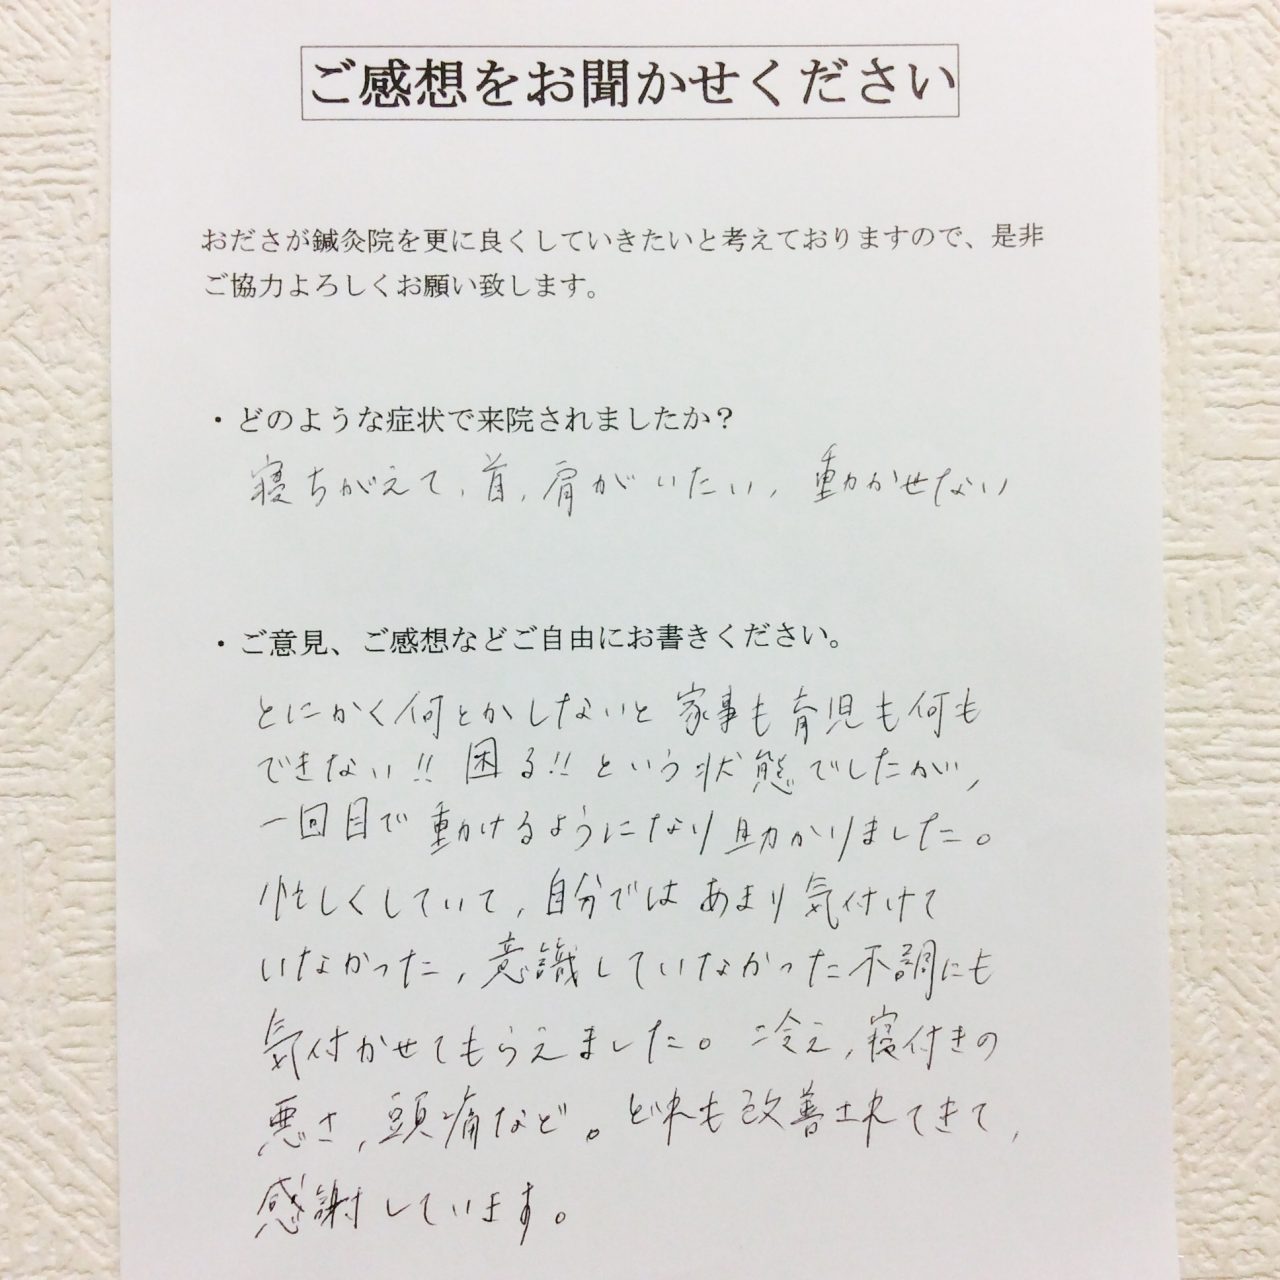 ご感想をお聞かせください
おださが鍼灸院を更に良くしていきたいと考えておりますので、是非
ご協力よろしくお願い致します。
・どのような症状で来院されましたか？
寝ちがえて、首、肩がいたい、動かせない
・ご意見、ご感想などご自由にお書きください。
とにかく何とかしないと家事も育児も何も
できない!! 困る!! という状態でしたが、
一回目で動けるようになり助かりました。
忙しくしていて、自分ではあまり気付けて
いなかった、意識していなかった不調にも
気付かせてもらえました。冷え、寝付きの
悪さ、頭痛など。どれも改善されてきて、
感謝しています。